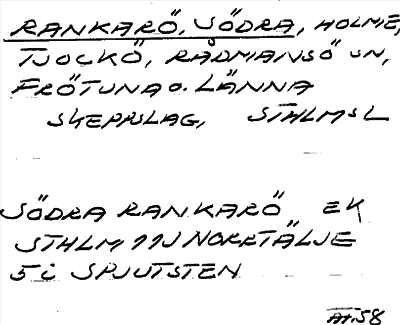 RANKARÖ, SÖDRA, HOLME,
TJOCKÖ, RÅDMANSÖ SN,
FRÖTUNA O. LÄNNA
SKEPPSLAG, STHLMS L
SÖDRA RANKARÖ EK
STHLM 11J NORRTÄLJE
5i SPJUTSTEN
AI.58